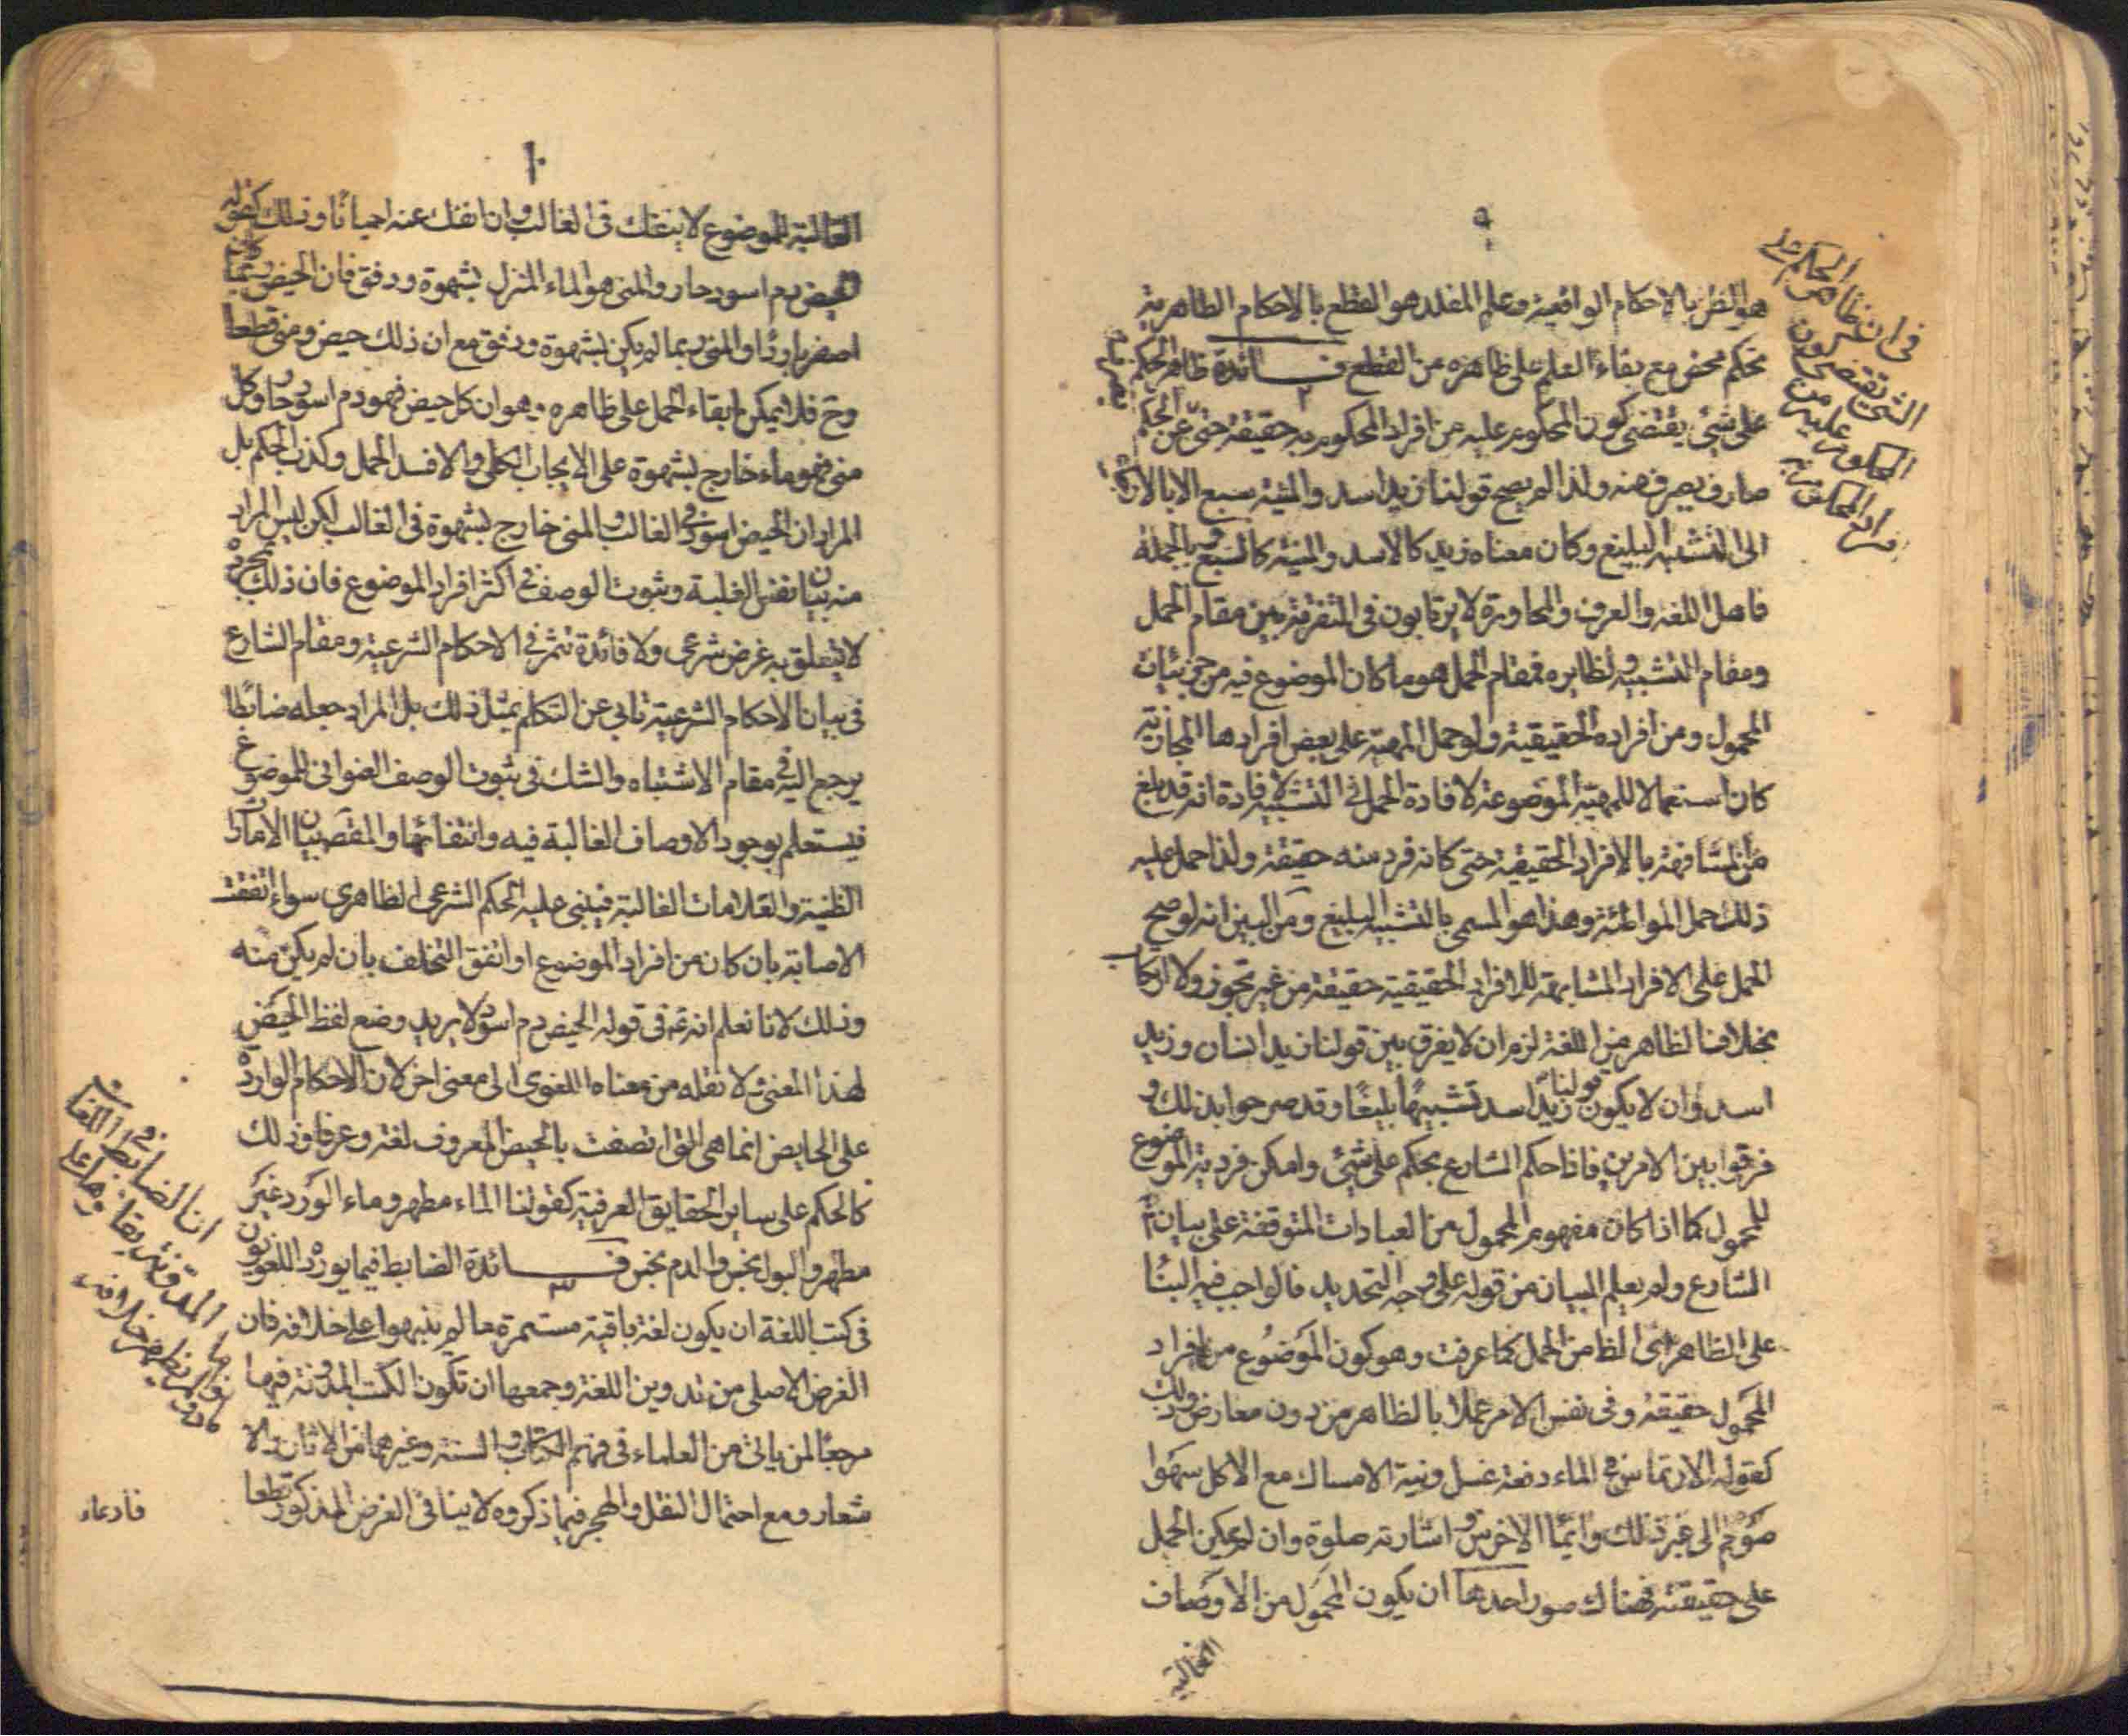 ٩
هو الظن بالاحكام الواقعية وعلم المقلد هو القطع بالاحكام الظاهرية
تحكم محض مع بقاء العلم على ظاهره من القطع فائدة ظاهر الحكم
على شئ يقتضى كون المحكوم عليه من افراد المحكوم به حقيقة حتى عن الحكم
صارف يصرف عنه ولذا لم يصح قولنا زيد اسد والمنية سبع الا بالارجاع
الى التشبيه البليغ وكان معناه زيد كالاسد والمنية كالسبع وبالجملة
فاهل اللغة والعرف والمحاورة لا يرتابون فى التفرقة بين مقام الحمل
ومقام التشبيه ونظايره فمقام الحمل هو ما كان الموضوع فيه من جزئيات
المحمول ومن افراده الحقيقية ولو حمل المهية على بعض افرادها المجازية
كان استعمالا للمهية الموضوعة لافادة الحمل فى التشبيه لافادة انه قد بلغ
من المشابهة بالافراد الحقيقية حتى كانه فرد منه حقيقة ولذا حمل عليه
ذلك حمل المواطئة وهذا هو المسمى بالتشبيه البليغ ومن البين انه لو صح
الحمل على الافراد المشابهة للافراد الحقيقية حقيقة من غير تجوز ولا ارتكاب
بخلاف الظاهر من اللغة لزم ان لا يفرق بين قولنا زيد انسان وزيد
اسد وان لا يكون قولنا زيد اسد تشبيها بليغا وقد صرحوا بذلك و
فرقوا بين الامرين فاذا حكم الشارع بحكم على شئ وامكن فردية الموضوع
للمحمول كما اذا كان مفهوم المحمول من العبادات المتوقفة على بيان
الشارع ولم يعلم البيان من قوله على وجه التحديد فالواجب فيه البناء
على الظاهر اى الظاهر من الحمل كما عرفت وهو كون الموضوع من افراد
المحمول حقيقة وفى نفس الامر عملا بالظاهر من دون معارض وذلك
كقوله الارتماس فى الماء دفعة غسل ونية الامساك مع الاكل سهوا
صوم الى غير ذلك وايماء الاخرس واشارته صلوة وان لم يمكن الحمل
على حقيقته فهناك صور احدها ان يكون المحمول من الاوصاف
الغالبة
فى ان ظاهر الحكم على
الشئ يقتضى كون
المحكوم عليه من
افراد المحكوم به
١٠
الغالبة للموضوع لا ينفك فى الغالب وان انفك عنه احيانا وذلك كقوله
الحيض دم اسود حار والمنى هو الماء المنزل بشهوة ودفق فان الحيض ربما كان
اصفر باردا والمنى ربما لم يكن بشهوة ودفق مع ان ذلك حيض ومنى قطعا
وح فلا يمكن ابقاء الحمل على ظاهره وهو ان كل حيض فهو دم اسود حار وكل
منى فهو ماء خارج بشهوة على الايجاب الكلى والا فسد الحمل وكذب الحكم بل
المراد ان الحيض اسود فى الغالب والمنى خارج بشهوة فى الغالب لكن ليس المراد
منه بيان نفس الغلبة وثبوت الوصف فى اكثر افراد الموضوع فان ذلك بمجرده
لا يتعلق به غرض شرعى ولا فائدة تثمر فى الاحكام الشرعية ومقام الشارع
فى بيان الاحكام الشرعية تابى عن التكلم بمثل ذلك بل المراد جعله ضابطا
يرجع اليه فى مقام الاشتباه والشك فى ثبوت الوصف العنوانى للموضوع
فيستعلم بوجود الاوصاف الغالبة فيه وانتفائها والمقص بيان الامارات
الظنية والعلامات الغالبة فيبنى عليه الحكم الشرعى الظاهرى سواء اتفقت
الاصابة بان كان من افراد الموضوع او اتفق التخلف بان لم يكن منه
وذلك لانا نعلم انه ع فى قوله الحيض دم اسود لا يريد وضع لفظ الحيض
لهذا المعنى ولا نقله من معناه اللغوى الى معنى اخر لان الاحكام الواردة
على الحايض انما هى التى اتصفت بالحيض المعروف لغة وعرفا وذلك
كالحكم على ساير الحقايق العرفية كقولنا الماء مطهر وماء الورد غير
مطهر والبول نجس والدم نجس فائدة الضابط فيما يورده اللغويون
فى كتب اللغة ان يكون لغة باقية مستمرة ما لم ينبهوا على خلافه فان
الغرض الاصلى من تدوين اللغة وجمعها ان تكون الكتب المدونة فيها
مرجعا لمن ياتى من العلماء فى فهم الكتاب والسنة وغيرهما من الاثار والا
شعار ومع احتمال النقل والهجر فيما ذكروه لا ينافى الغرض المذكور قطعا
فادعاء
ان الضابط فى اللغات
المدونة بقاؤها على